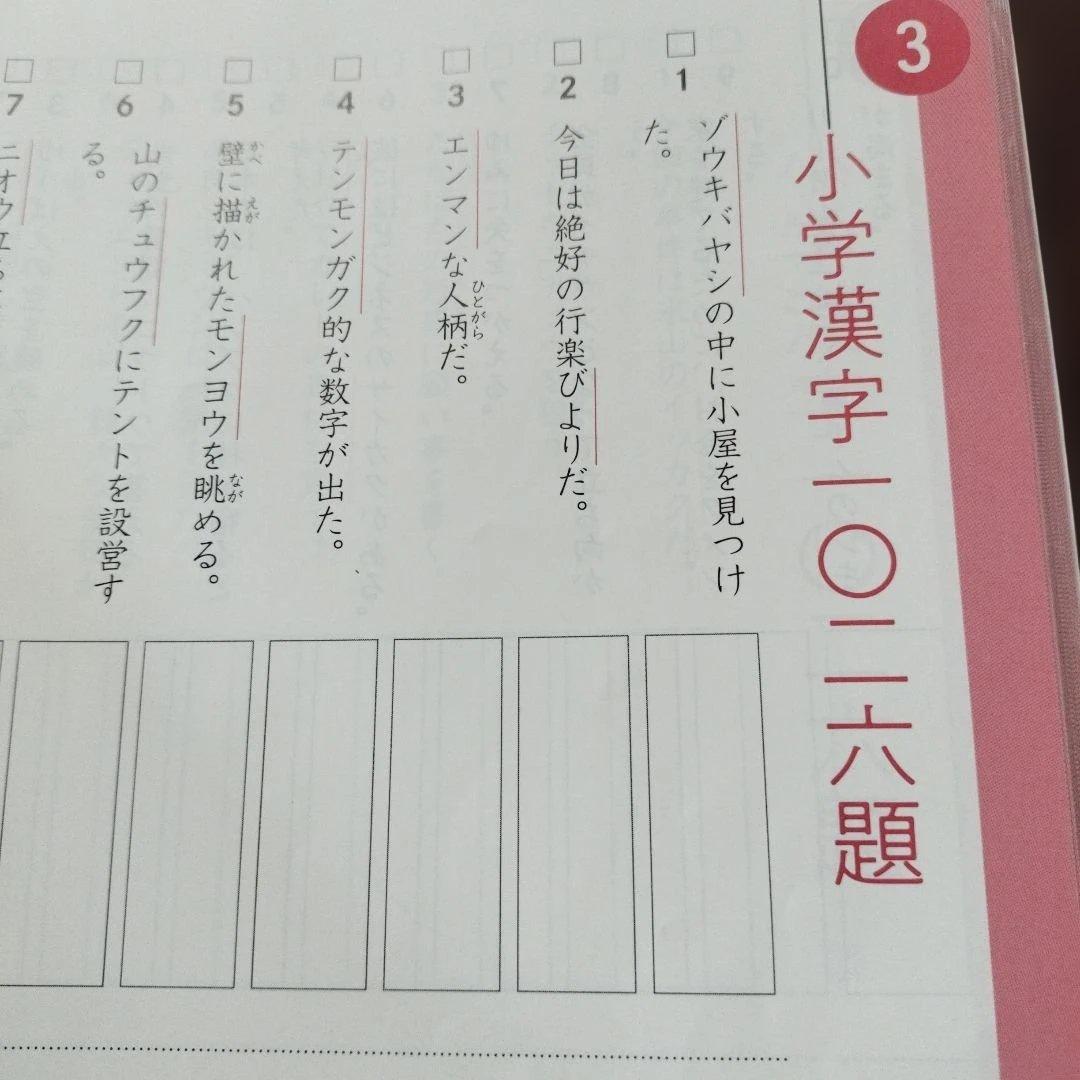 3
小学漢字一〇二六題
1
ゾウキバヤシの中に小屋を見つけ
た。
2
今日は絶好の行楽びよりだ。
3
エンマンな人柄だ。
ひとがら
4
テンモンガク的な数字が出た。
5
壁に描かれたモンヨウを眺める。
かべ
えが
なが
6
山のチュウフクにテントを設営す
る。
7
ニオウ立